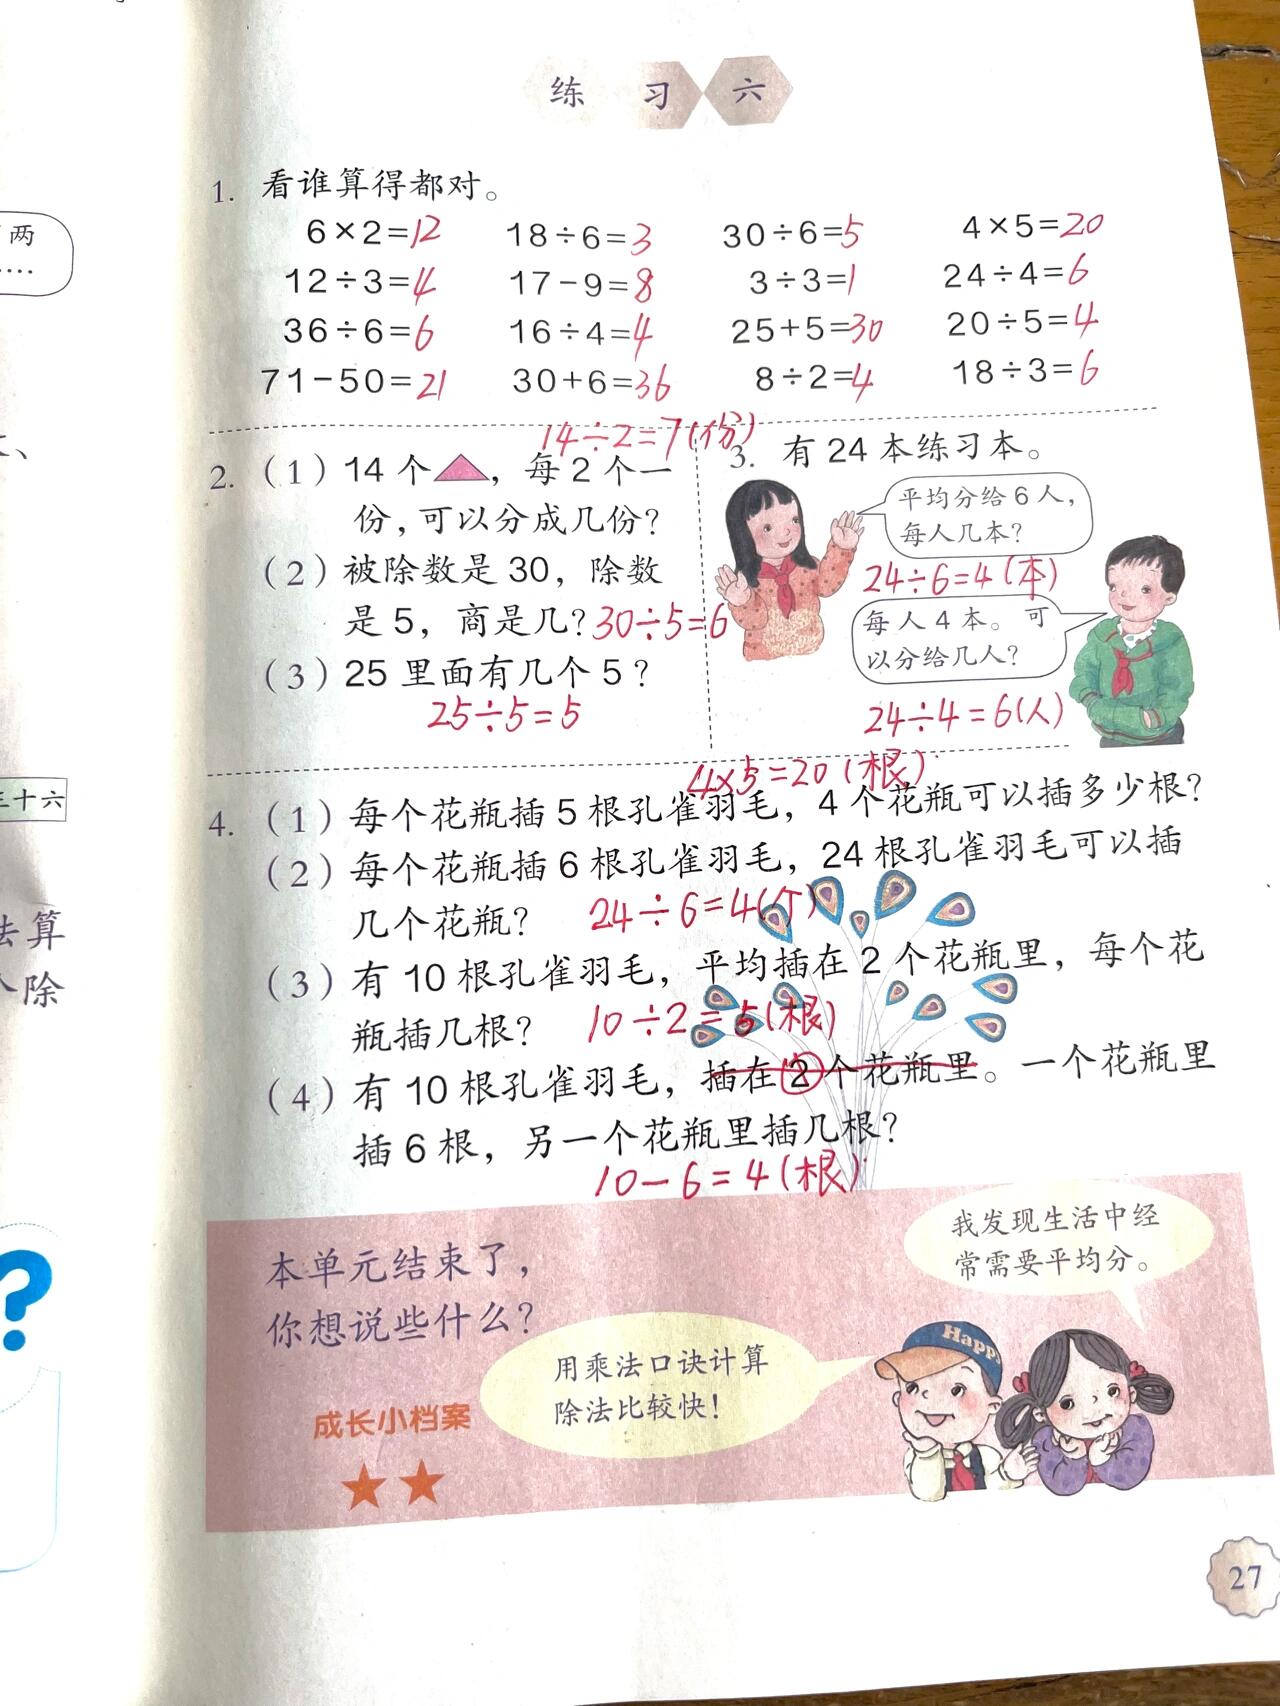 两
……
三十六
法算
个除
练习六
1. 看谁算得都对。
6×2=12 18÷6=3 30÷6=5 4×5=20
12÷3=4 17-9=8 3÷3=1 24÷4=6
36÷6=6 16÷4=4 25+5=30 20÷5=4
71-50=21 30+6=36 8÷2=4 18÷3=6
14÷2=7(份)
2. (1) 14个 ,每2个一
份,可以分成几份?
(2) 被除数是30,除数
是5,商是几? 30÷5=6
(3) 25里面有几个5?
25÷5=5
3. 有24本练习本。
平均分给6人,
每人几本?
24÷6=4(本)
每人4本。可
以分给几人?
24÷4=6(人)
4×5=20(根)
4. (1) 每个花瓶插5根孔雀羽毛,4个花瓶可以插多少根?
(2) 每个花瓶插6根孔雀羽毛,24根孔雀羽毛可以插
几个花瓶? 24÷6=4(个)
(3) 有10根孔雀羽毛,平均插在2个花瓶里,每个花
瓶插几根? 10÷2=5(根)
(4) 有10根孔雀羽毛,插在2个花瓶里。一个花瓶里
插6根,另一个花瓶里插几根?
10-6=4(根)
本单元结束了,
你想说些什么?
我发现生活中经
常需要平均分。
用乘法口诀计算
除法比较快!
成长小档案
Happy
?
27